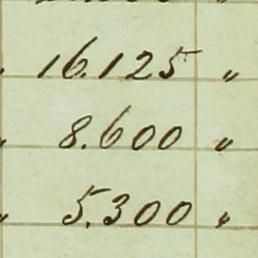 " 16.125 "
" 8.600 "
" 5.300 "